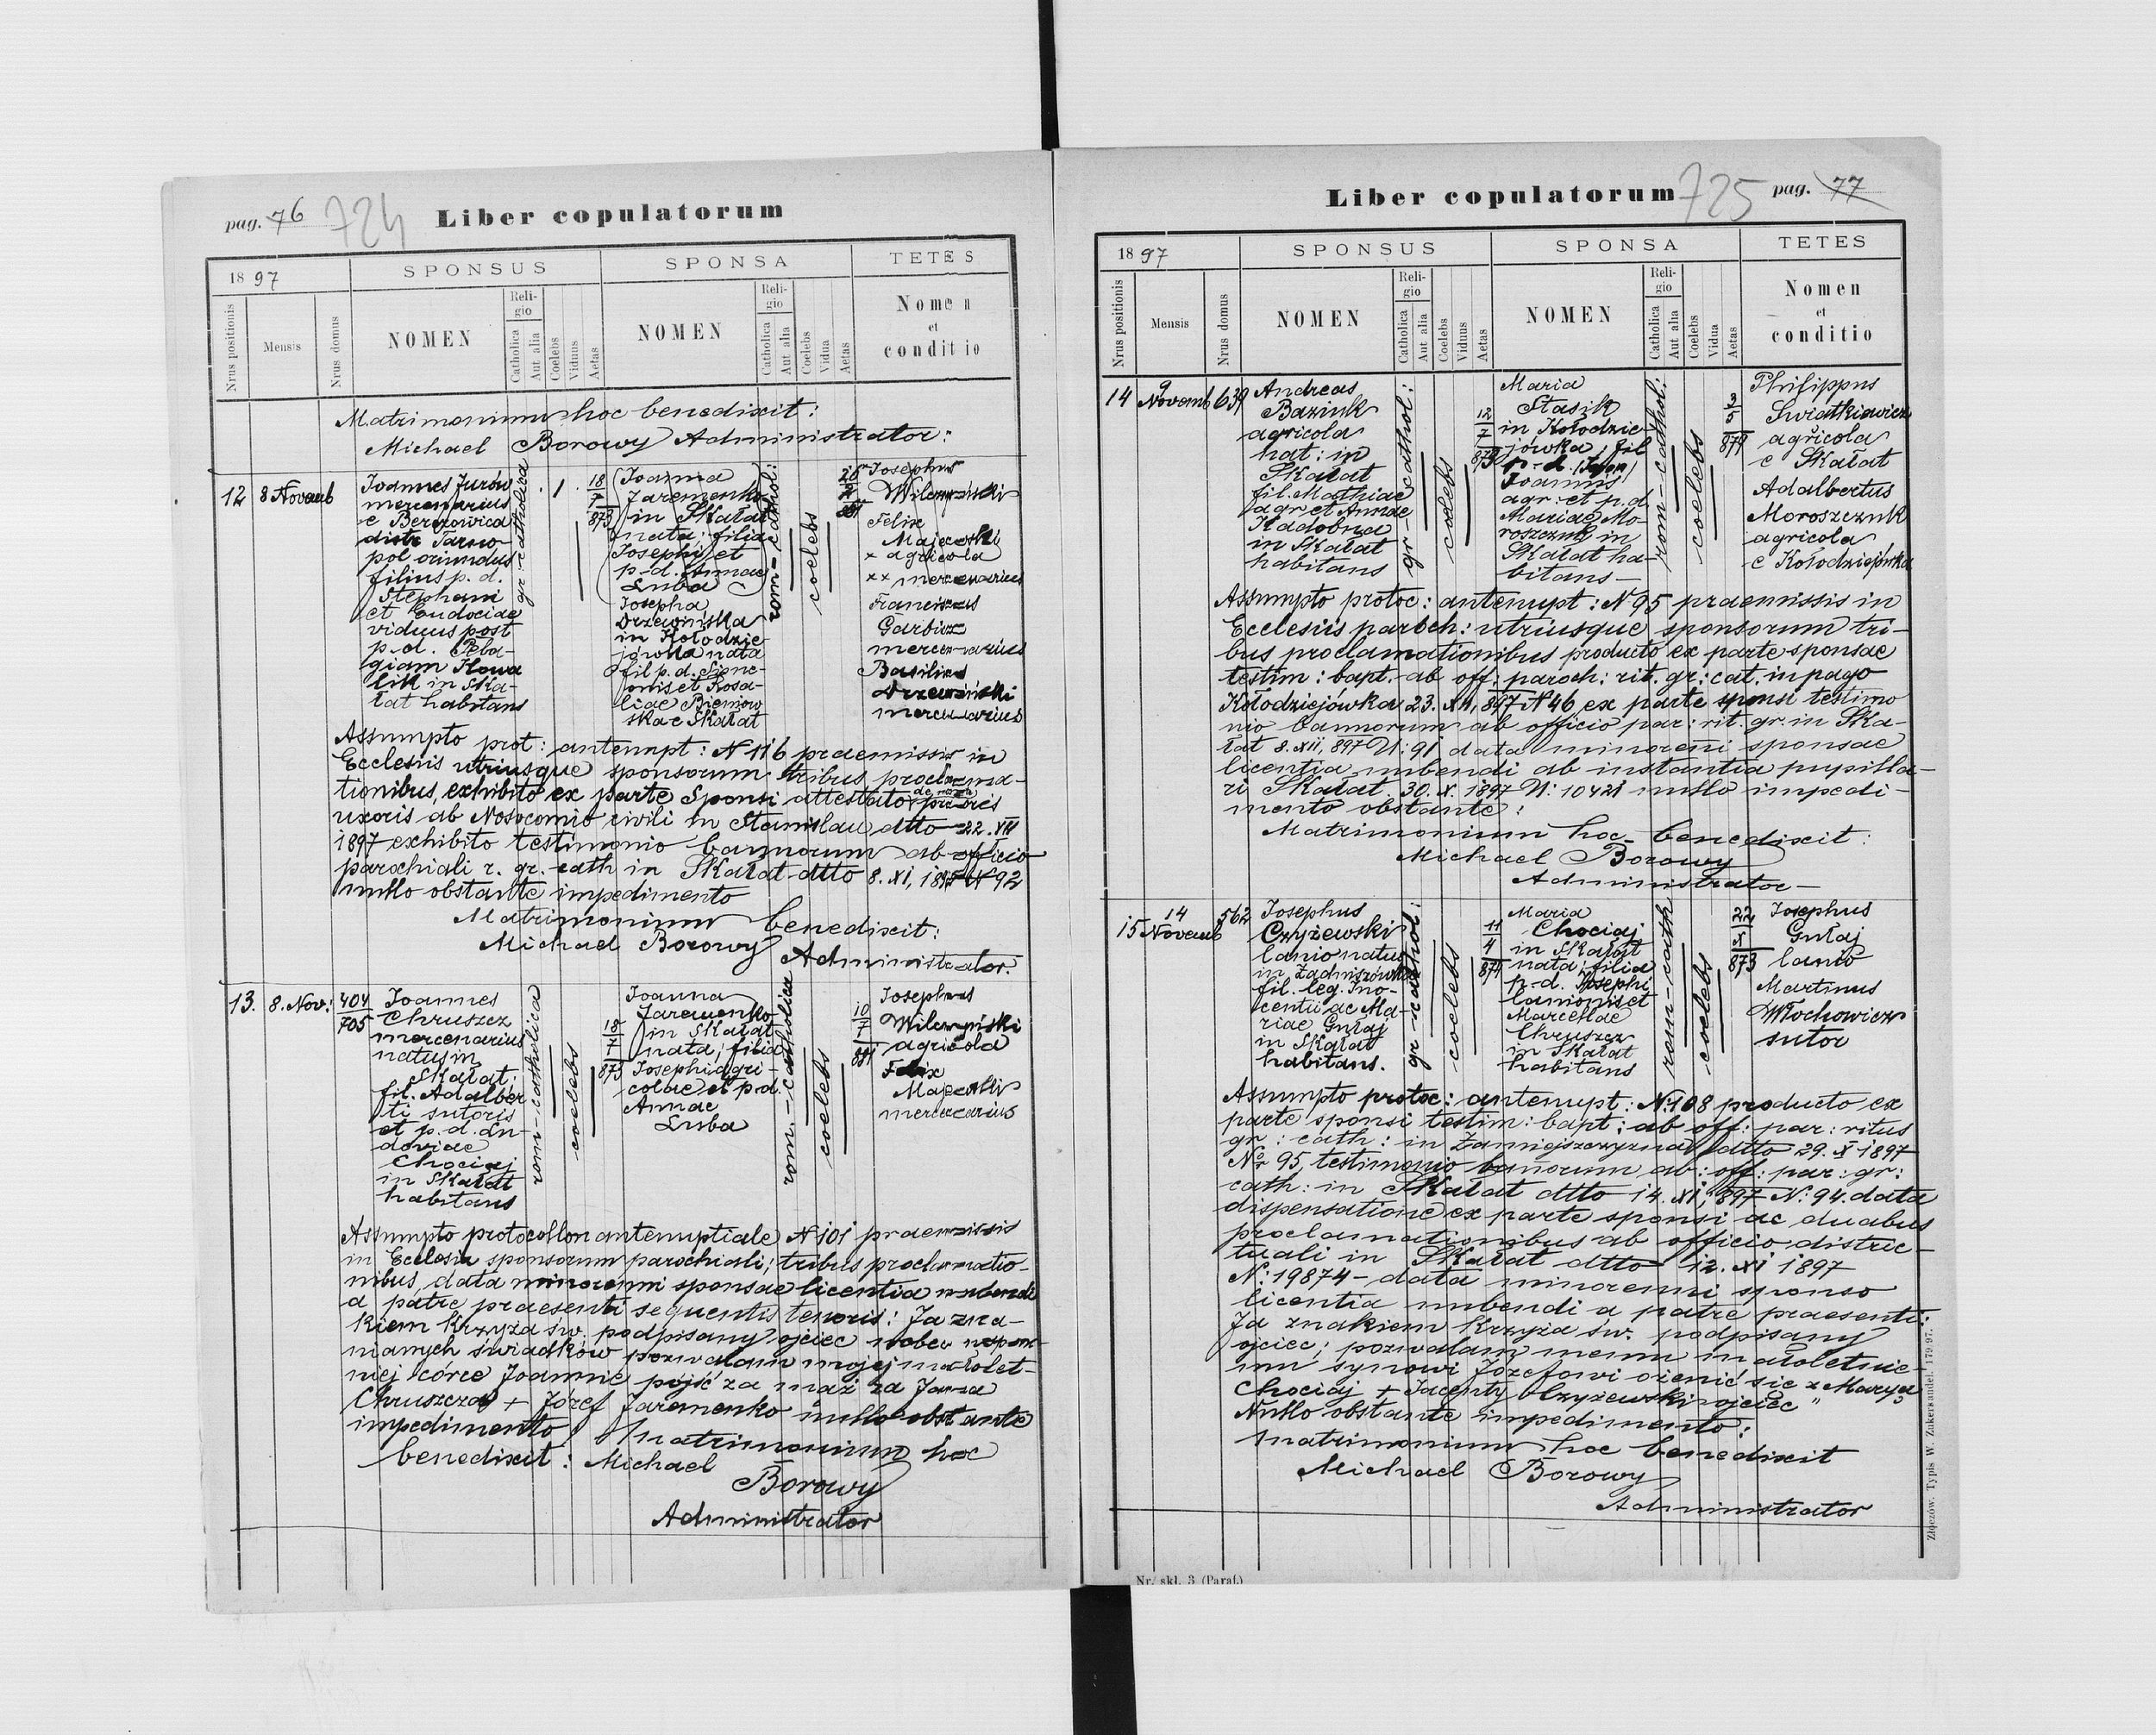 pag. 76 724 Liber copulatorum
1897
SPONSUS
SPONSA
TETES
Nrus positionis
Mensis
Nrus domus
NOMEN
Religio
Catholica
Aut alia
Coelebs
Viduus
Aetas
NOMEN
Religio
Catholica
Aut alia
Coelebs
Vidua
Aetas
Nomen
et
conditio
Matrimonium hoc benedixit:
Michael Borowy Administrator:
12
8 Novemb
Joannes Jurów
mercenarius
e Berezowica
distr Tarno-
pol oriundus
filius p. d.
Stephani
et Eudociae
viduus post
p. d. Peła-
giam Kowa
lik in Ska-
łat habitans
gr. catholica
1
18
7
873
Joanna
Jaremenko
in Skałat
nata; filia
Josephi et
p. d. Annae
Luba
Josepha
Drzewińska
in Kołodzie-
jówka nata
fil p. d. Sime-
onis et Rosa-
liae
ska e Skałat
rom-cathol:
coelebs
Josephus
Wilczyński
Felix
Majewski
x agricola
xx mercenarius
Franciscus
Garbicz
mercenarius
Basilius
Drzewiński
mercenarius
Assumpto prot: antenupt: N 116 praemissis in
Ecclesiis utriusque sponsorum tribus proclama-
tionibus, exhibito ex parte Sponsi attestato de morte prioris
uxoris ab Nosocomio civili in Stanislau dtto 22. VII
1897 exhibito testimonio bannorum ab officio
parochiali r. gr. cath in Skałat dtto 8. XI, 1897 N 92
nullo obstante impedimento
Matrimonium benedixit:
Michael Borowy
Administrator.
13.
8. Nov:
404
705
Joannes
Chruszcz
mercenarius
natus in
Skałat;
fil. Adalber
ti sutoris
et p. d. Lu-
doviae
Chociaj
in Skałat
habitans
rom-catholica
coelebs
18
7
873
Joanna
Jaremenko
in Skałat
nata; filia
Josephi agri-
colae et p. d.
Annae
Luba
rom.-catholica
coelebs
10
7
881
Josephus
Wilczyński
agricola
Felix
Majewski
mercenarius
Assumpto protocollon antenuptiale N 101 praemissis
in Ecclesia sponsorum parochiali; tribus proclamatio-
nibus, data minorenni sponsae licentia nubendi
a patre praesenti sequentis tenoris: Ja zna-
kiem krzyża św. podpisany ojciec wobec wspom-
nianych świadków pozwalam mojej małolet-
niej córce Joannie pójść za mąż za Jana
Chruszcza + Józef Jaremenko nullo obstante
impedimento Matrimonium hoc
benedixit: Michael
Borowy
Administrator
Liber copulatorum 725 pag. 77
1897
SPONSUS
SPONSA
TETES
Nrus positionis
Mensis
Nrus domus
NOMEN
Religio
Catholica
Aut alia
Coelebs
Viduus
Aetas
NOMEN
Religio
Catholica
Aut alia
Coelebs
Vidua
Aetas
Nomen
et
conditio
14
9
Novemb
639
Andreas
Baziuk
agricola
hat: in
Skałat
fil. Mathiae
agr et Annae
Kadobna
in Skałat
habitans
gr-cathol:
coelebs
12
7
873
Maria
Stasik
in Kołodzie
jówka, fil
p. d.
Joannis
agr: et p. d.
Mariae Mo-
roszczuk in
Skałat ha-
bitans
rom-cathol:
coelebs
3
5
879
Philippus
Swiatkiewicz
agricola
e Skałat
Adalbertus
Moroszczuk
agricola
e Kołodziejówka
Assumpto protoc: antenupt: N 95 praemissis in
Ecclesiis paroch: utriusque sponsorum tri-
bus proclamationibus producto ex parte sponsae
testim: bapt. ab off: paroch: rit. gr: cat. in pago
Kołodziejówka 23. XII, 897 N 46 ex parte sponsi testimo
nio bannorum ab officio par: rit. gr. in Ska-
łat 8. XII, 897 N: 91 data minorenni sponsae
licentia nubendi ab instantia pupilla-
ri Skałat. 30. X. 1897 N: 10421 nullo impedi-
mento obstante:
Matrimonium hoc benedixit:
Michael Borowy
Administrator
15
14
Novemb
562
Josephus
Czyżewski
lanio natus
in Zadniszówka
fil. leg. Ino-
centii ac Ma-
riae Gułaj
in Skałat
habitans.
gr-cathol:
coelebs
11
4
874
Maria
Chociaj
in Skałat
nata; filia
p. d. Josephi
lanionis et
Marcellae
Chruszcz
in Skałat
habitans
rom-cath
coelebs
22
873
Josephus
Gułaj
lanio
Martinus
Włochowicz
sutor
Assumpto protoc: antenupt: N: 108 producto ex
parte sponsi testim: bapt: ab off: par: ritus
gr: cath: in dtto 29. X 1897
Nr 95, testimonio bannorum ab: off: par: gr:
cath: in Skałat dtto 14. XI, 897 N: 94. data
dispensatione ex parte sponsi ac duabus
proclamationibus ab officio distric-
tuali in Skałat dtto 12. XI 1897
N: 19874 - data minorenni sponso
licentia nubendi a patre praesenti:
Ja znakiem krzyża św. podpisany
ojciec; pozwalam memu małoletnie-
mu synowi Józefowi ożenić się z Maryą
Chociaj + Jacenty Czyżewski ojciec"
Nullo obstante impedimento:
Matrimonium hoc benedixit
Michael Borowy
Administrator
Nr. skl. 3 (Paraf.)
Złoczów. Typis W. Zukerkandel. 179 97.